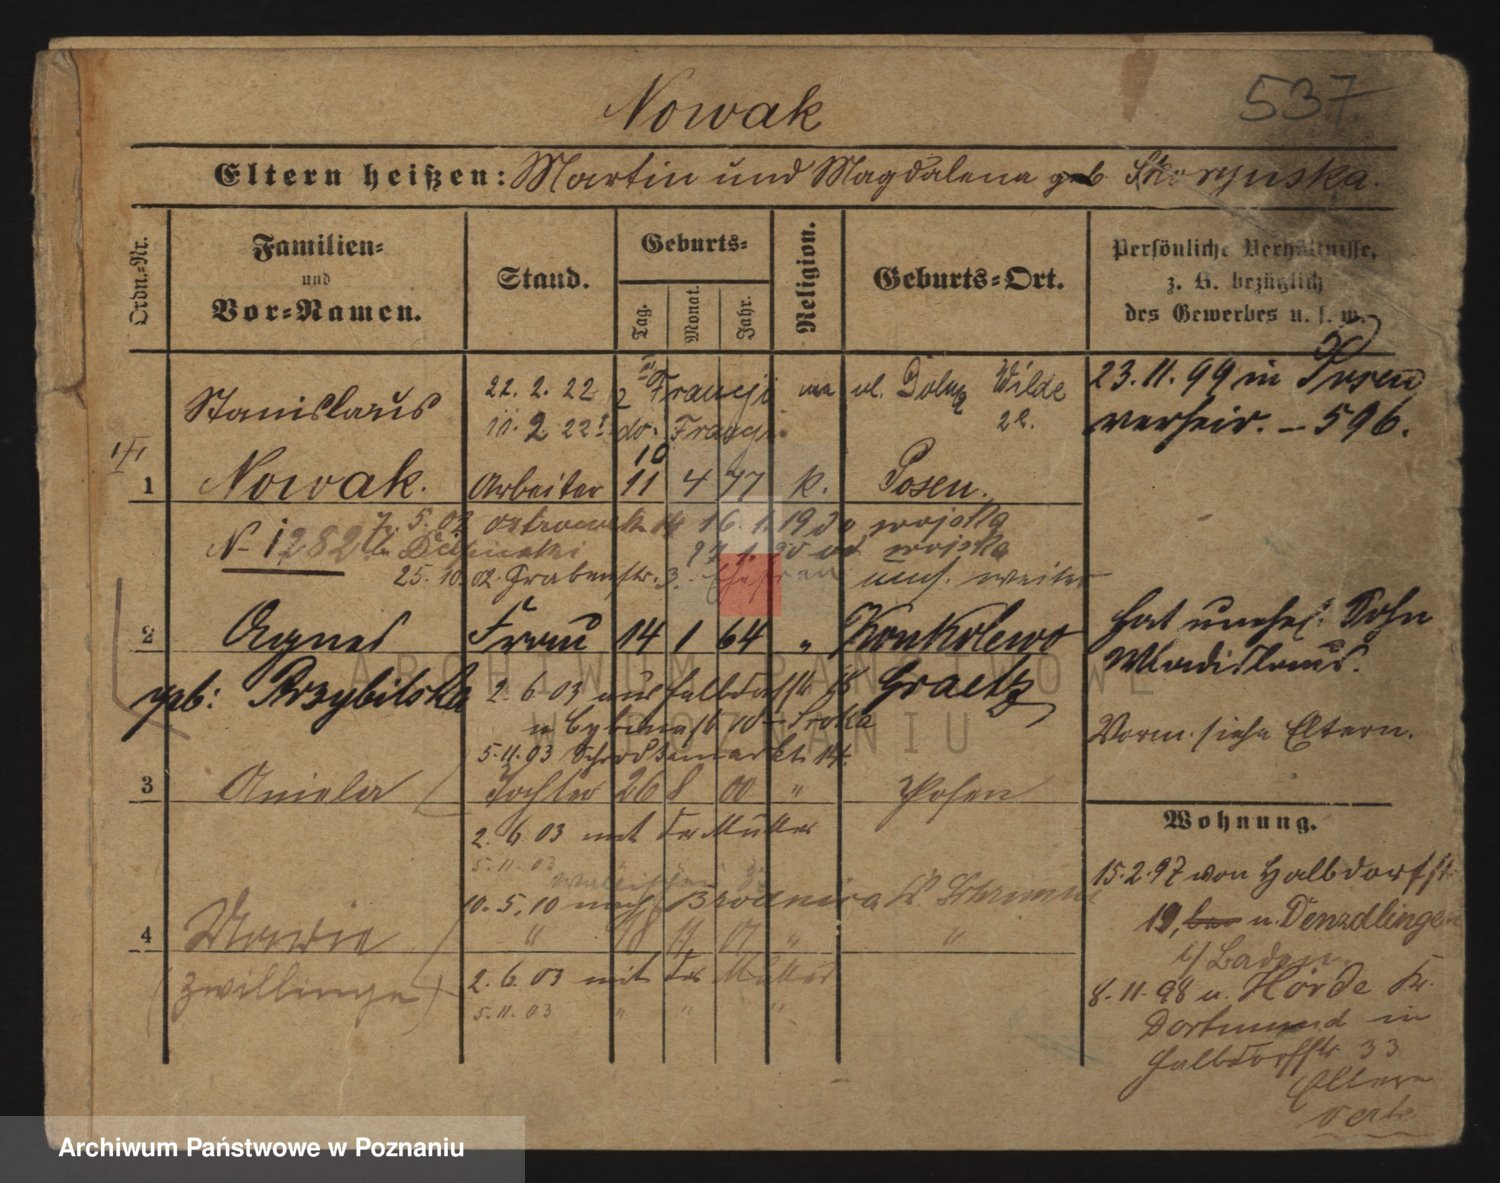 Nowak
537.
Eltern heißen: Martin und Magdalena geb
Ordn.-Nr.
Familien-
und
Vor-Namen.
Stand.
Geburts-
Tag.
Monat.
Jahr.
Religion.
Geburts-Ort.
Persönliche Verhältnisse,
z. B. bezüglich
des Gewerbes u. s. w.
Stanislaus
22. 2. 22 z Francji na ul. Dolna Wilde
2 22 do. Francji
22.
23. 11. 99 in Posen
verheir. – 596.
10
1 Nowak. Arbeiter 11 4 77 k. Posen.
N 1282
7. 5. 02
wojska
wojska
25. 10. 02. Grabenstr. 3. Ehefrau weiter
2 Agnes Frau 14 1 64 " Konkolewo
geb: Przybilska
Graetz
hat unehel. Sohn
Wladislaus.
2. 6. 03 aus Halbdorfstr
5. 11. 03 Schrodkamarkt 14.
Vorm. siehe Eltern.
3 Aniela Tochter 26 8 00 " Posen
2. 6. 03 mit der Mutter
5. 11. 03
10. 5. 10 nach
4 Maria " "
(Zwillinge)
2. 6. 03 mit der Mutter
5. 11. 03 " " "
Wohnung.
15. 2. 97 von Halbdorfstr.
19, u. Denzdlingen
i/ Baden.
8. 11. 98 u. Hörde Kr.
Dortmund in
Halbdorfstr 33
Eltern
verte
ARCHIWUM PAŃSTWOWE
W POZNANIU
Archiwum Państwowe w Poznaniu